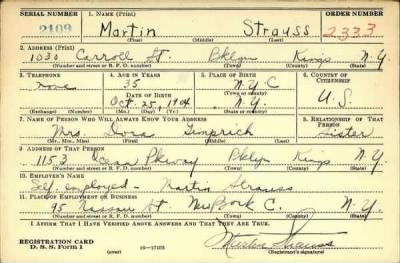 SERIAL NUMBER 1. NAME (Print) ORDER NUMBER
2109 Martin Strauss 2333
(First) (Middle) (Last)
2. ADDRESS (Print)
1030 Carroll St. Bklyn Kings N.Y.
(Number and street or R. F. D. number) (Town) (County) (State)
3. TELEPHONE 4. AGE IN YEARS 5. PLACE OF BIRTH 6. COUNTRY OF CITIZENSHIP
none 35 N.Y.C
DATE OF BIRTH (Town or county)
Oct. 25, 1904 N.Y. U.S.
(Exchange) (Number) (Mo.) (Day) (Yr.) (State or country)
7. NAME OF PERSON WHO WILL ALWAYS KNOW YOUR ADDRESS 8. RELATIONSHIP OF THAT PERSON
Mrs. Dora Sister
(Mr., Mrs., Miss) (First) (Middle) (Last)
9. ADDRESS OF THAT PERSON
1153 Ocean Pkway Bklyn Kings N.Y.
(Number and street or R. F. D. number) (Town) (County) (State)
10. EMPLOYER'S NAME
Self employed - Martin Strauss
11. PLACE OF EMPLOYMENT OR BUSINESS
95 Nassau St. New York C. N.Y.
(Number and street or R. F. D. number) (Town) (County) (State)
I AFFIRM THAT I HAVE VERIFIED ABOVE ANSWERS AND THAT THEY ARE TRUE.
REGISTRATION CARD
D. S. S. Form 1 (over) Martin Strauss
(Registrant's signature)